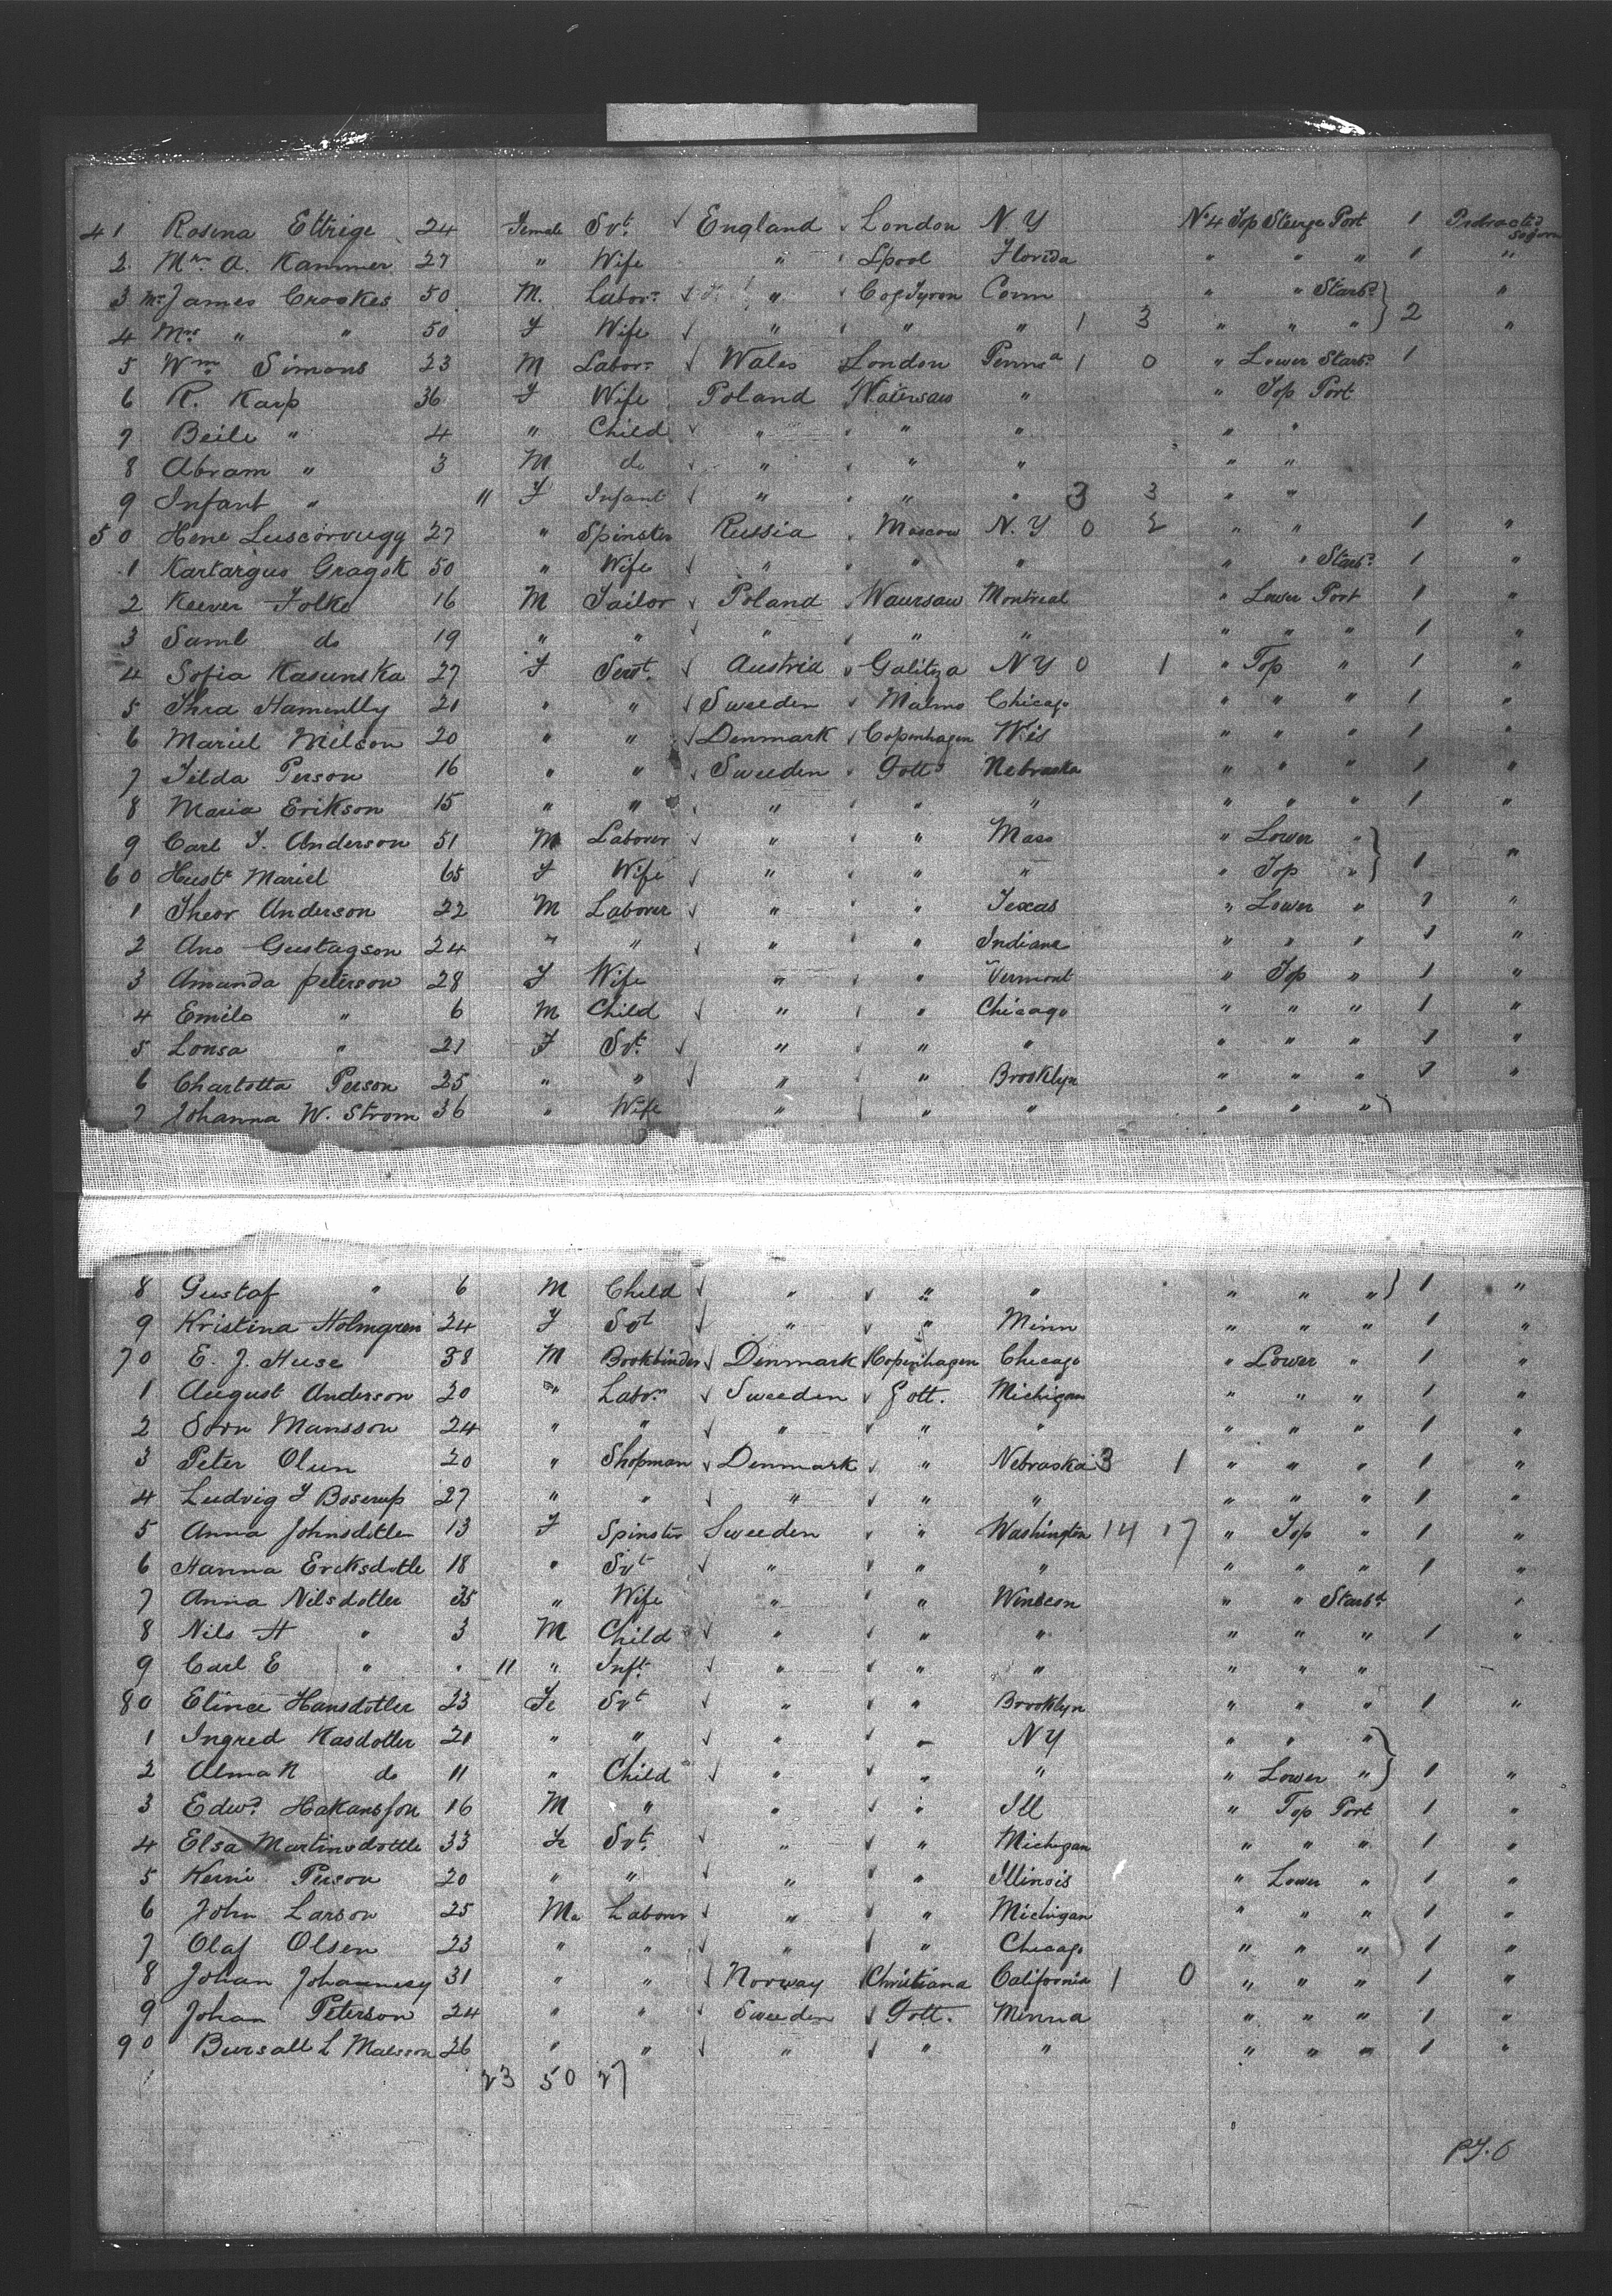 41 Rosina Ettrige 24 Female Svt. England London N.Y No 4 Top Steerge Port 1 Protracted Sojourn
2 Mrs. A. Kammer 27 " Wife " Lpool Florida " " " 1 "
3 Mr James Crookes 50 M. Labor. " Co Tyron Conn " " Starbd. "
4 Mrs " " 50 F Wife " " " 1 3 " " " 2 "
5 Wm Simons 23 M Labor. Wales London Penna 1 0 " Lower Starbd. 1
6 R. Karp 36 F Wife Poland Waursaw " " Top Port
7 Beile " 4 " Child " " " " "
8 Abram " 3 M do " " " " "
9 Infant " 11 F Infant " " " 3 3 " "
50 Hene 27 " Spinster Russia Moscow N.Y 0 2 " " 1 "
1 Kartargus Gragok 50 " Wife " " " " " Starbd. 1 "
2 Keever Folke 16 M Tailor Poland Waursaw Montreal " Lower Port 1 "
3 Saml do 19 " " " " " " " " 1 "
4 Sofia Kasunska 27 F Servt. Austria Galitza N Y 0 1 " Top " 1 "
5 Thra 21 " " Sweeden Malmo Chicago " " " 1 "
6 Mariel Milson 20 " " Denmark Copenhagen Wis " " " 1 "
7 Tilda Person 16 " " Sweeden Gott Nebraska " " " 1 "
8 Maria Erikson 15 " " " " " " " " 1 "
9 Carl F. Anderson 51 M Laborer " " Mass " Lower "
60 Hust Mariel 65 F Wife " " " " Top " 1 "
1 Theor Anderson 22 M Laborer " " Texas " Lower " 1 "
2 Ano Gustagson 24 " " " " Indiana " " " 1 "
3 Amanda peterson 28 F Wife " " Vermont " Top " 1 "
4 Emilo " 6 M Child " " Chicago " " " 1 "
5 Lonsa " 21 F Svt. " " " " " " 1 "
6 Charlotta Person 25 " " " " Brooklyn " " " 1 "
7 Johanna W. Strom 36 " Wife " " " " " "
8 Gustaf " 6 M Child " " " " " " 1 "
9 Kristina Holmgren 24 F Svt " " Minn " " " 1 "
70 E. J. Huse 38 M Bookbinder Denmark Copenhagen Chicago " Lower " 1 "
1 August Anderson 20 " Labr. Sweeden Gott. Michigan " " " 1 "
2 Sorn Mansson 24 " " " " " " " " 1 "
3 Peter Olun 20 " Shopman Denmark " Nebraska 3 1 " " " 1 "
4 Ludvig F Boserup 27 " " " " " " " " 1 "
5 Anna Johnsdotter 13 F Spinster Sweeden " Washington 14 17 " Top " 1 "
6 Hanna Ericksdotte 18 " Svt " " " " " " 1 "
7 Anna Nilsdotter 35 " Wife " " " " Starbd. "
8 Nils H " 3 M Child " " " " " " 1 "
9 Carl E " " 11 " Inft. " " " " " "
80 Elince Hansdotter 23 Fe Svt " " Brooklyn " " " 1 "
1 Ingred Kasdotter 21 " " " " N Y " " "
2 Alma N do 11 " Child " " " " Lower " 1 "
3 Edwd. Hakansson 16 M " " " Ill " Top Port 1 "
4 Elsa Martinsdottle 33 Fe Svt. " " Michigan " " " 1 "
5 Kerni Person 20 " " " " Illinois " Lower " 1 "
6 John Larson 25 Ma Laborer " " Michigan " " " 1 "
7 Olaf Olsen 23 " " " " Chicago " " " 1 "
8 Johan Johannesy 31 " " Norway Christiana California 1 0 " " " 1 "
9 Johan Peterson 24 " " Sweeden Gott. Minna " " " 1 "
90 L Malsson 26 " " " " " " " " 1 "
23 50 27